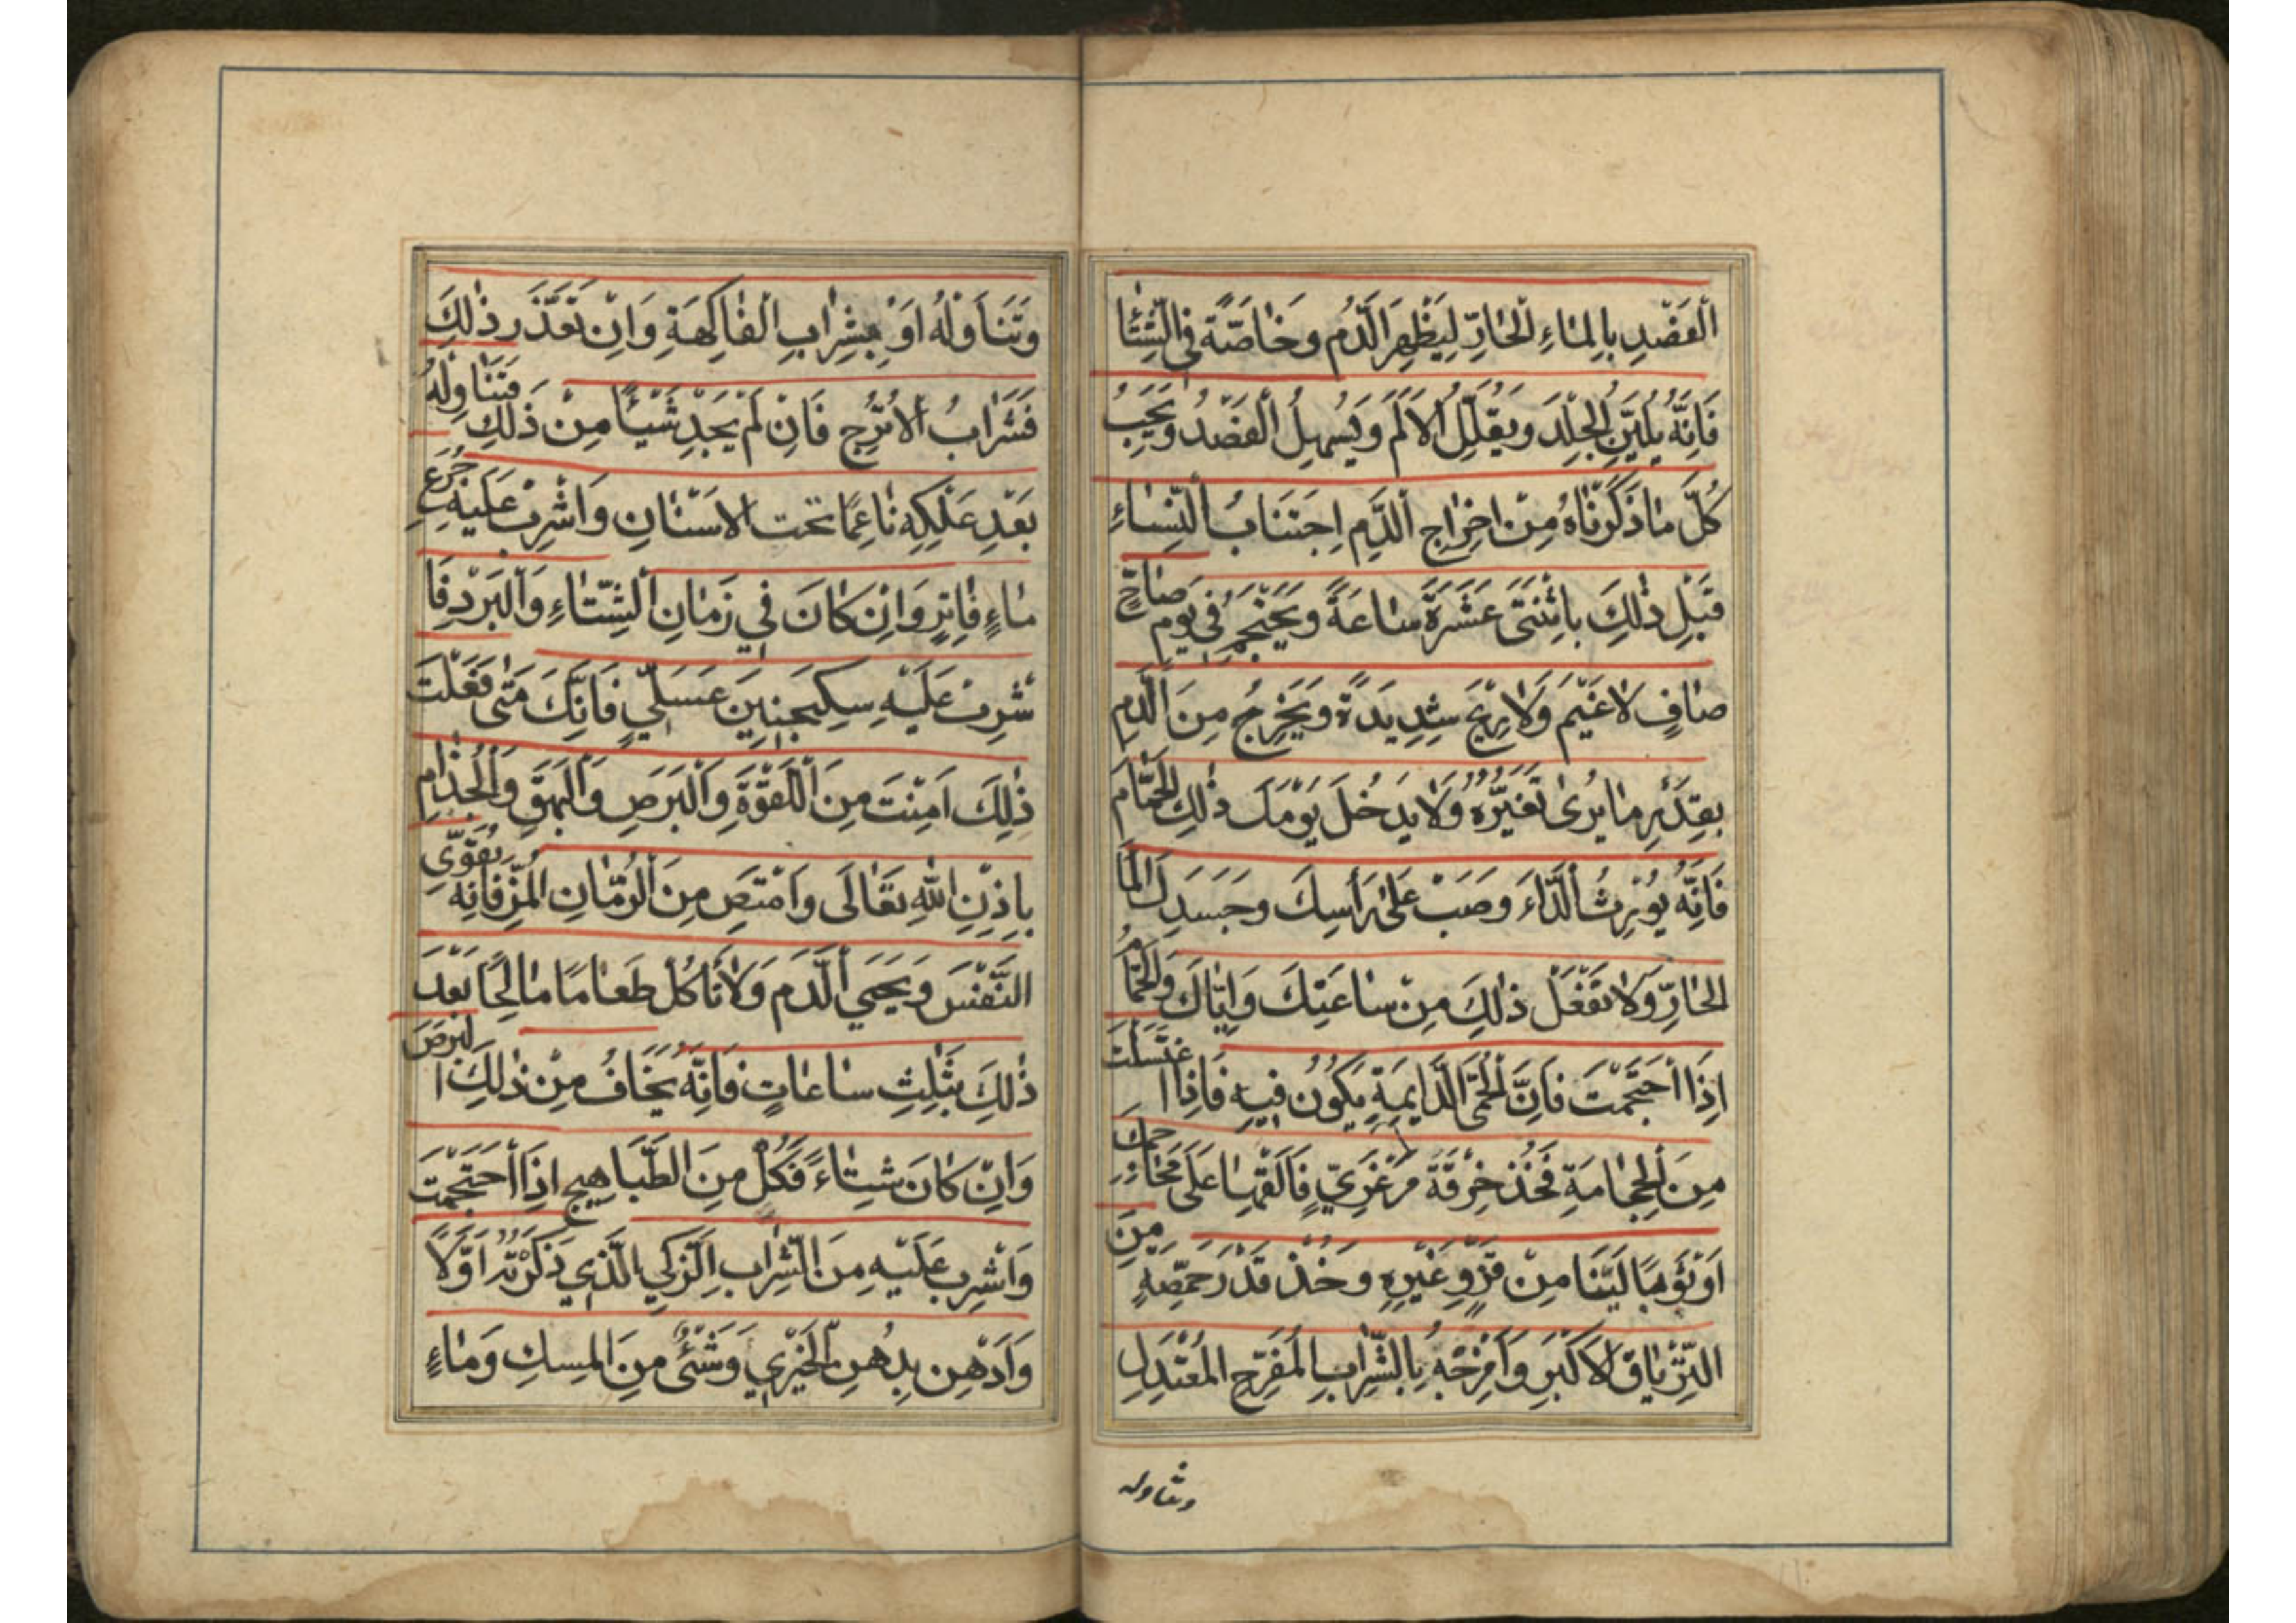 الْفَصْدِ بِالْمَاءِ الْحَارِّ لِيَظْهَرَ الدَّمُ وَخَاصَّةً فِي الشِّتَا
فَاِنَّهُ يُلَيِّنُ الْجِلْدَ وَيُقَلِّلُ الْاَلَمَ وَيُسْهِلُ الْفَصْدُ وَيَجِبُ
كُلَّ مَا ذَكَرْنَاهُ مِنْ اِخْرَاجِ الدَّمِ اِجْتِنَابُ النِّسَاءِ
قَبْلِ ذٰلِكَ بِاثْنَتَىْ عَشَرَةَ سَاعَةً وَيَحْتَجِمُ فِى يَوْمٍ صَاحٍ
صَافٍ لَا غَيْمَ وَلَا رِيْحَ شَدِيدَةً وَيَخْرُجُ مِنَ الدَّمِ
بِقَدْرِ مَا يُرىٰ تَغَيُّرُهُ وَلَا يَدْخُلْ يَوْمَكَ ذٰلِكَ الْحَمَّامَ
فَاِنَّهُ يُوْرِثُ الدَّاءَ وَصَبْ عَلىٰ رَأْسِكَ وَجَسَدِكَ الْمَا
الْحَارِّ وَلَا تَفْعَلْ ذٰلِكَ مِنْ سَاعَتِكَ وَاِيَّاكَ وَالْحَمَّامُ
اِذَا اَحْتَجَمْتَ فَاِنَّ الْحُمَّى الدَّايِمَةِ يَكُوْنُ فِيهِ فَاِذَا اغْتَسَلْتَ
مِنَ الْحِجَامَةِ فَخُذْ خِرْقَةً مَرْغَزِيٍّ فَاَلْقِهَا عَلَى مَحَاجِمِكَ
اَوْ ثَوْبًا لَيِّنَا مِنْ قَزٍّ وَغَيْرِهِ وَخُذْ قَدْرَ حِمَّصَةٍ مِنَ
التِّرْيَاقِ الْاَكْبَرِ وَامْزِجْهُ بِالشَّرَابِ الْمُفَرِّحِ الْمُعْتَدِلِ
وتناوله
وَتَنَاوَلْهُ اَوْ بِشِرَابِ الْفَاكِهَةِ وَاِنْ تَعَذَّرَ ذٰلِكَ
فَشَرَابُ الْاُتْرُجِ فَاِنْ لَمْ يَجِدْ شَيْـًٔا مِنْ ذَلِكَ فَتَنَاوِلْهُ
بَعْدِ عَلْكِهِ نَاعِمًا تحت الاسْنَانِ وَاشْرِبْ عَلَيْهِ جُرَعِ
مَاءٍ فَاتِرٍ وَاِنْ كَانَ فِي زَمَانِ الشِّتَاءِ وَالْبَرْدِ فَا
شْرِبْ عَلَيْهِ سِكِنْجَبِينَ عَسَلِيٍّ فَاِنَّكَ مَتٰى فَعَلْتَ
ذٰلِكَ اَمِنْتَ مِنَ اللَّقْوَةِ وَالْبَرَصِ وَالْبَهَقِ وَالْجُذَامِ
بِاِذْنِ اللّٰهِ تَعَالَى وَامْتَصِ مِنَ الرُّمَّانِ الْمُزِّ فَاِنَّه يُقَوِّى
النَّفْسَ وَيَحْيَى الدَّمَ وَلَا تَأْكُلْ طَعَامًا مَالِحًا بَعْدَ
ذٰلِكَ بِثَلٰثِ سَاعَاتٍ فَاِنَّهُ يَخَافُ مِنْ ذٰلِكَ البَرَصَ
وَاِنْ كَانَ شِتَاءً فَكُلْ مِنَ الطَّبَاهِيجِ اِذَا اَحْتَجَمْتَ
وَاشْرِبْ عَلَيْهِ مِنَ الشَّرَابِ الزَّكِي الَّذِي ذَكَرْتُهُ اَوَّلًا
وَادْهِنْ بِدُهْنِ الْخَيْرِي وَشَئٍْ مِنَ الْمِسكِ وَمَاءٍ